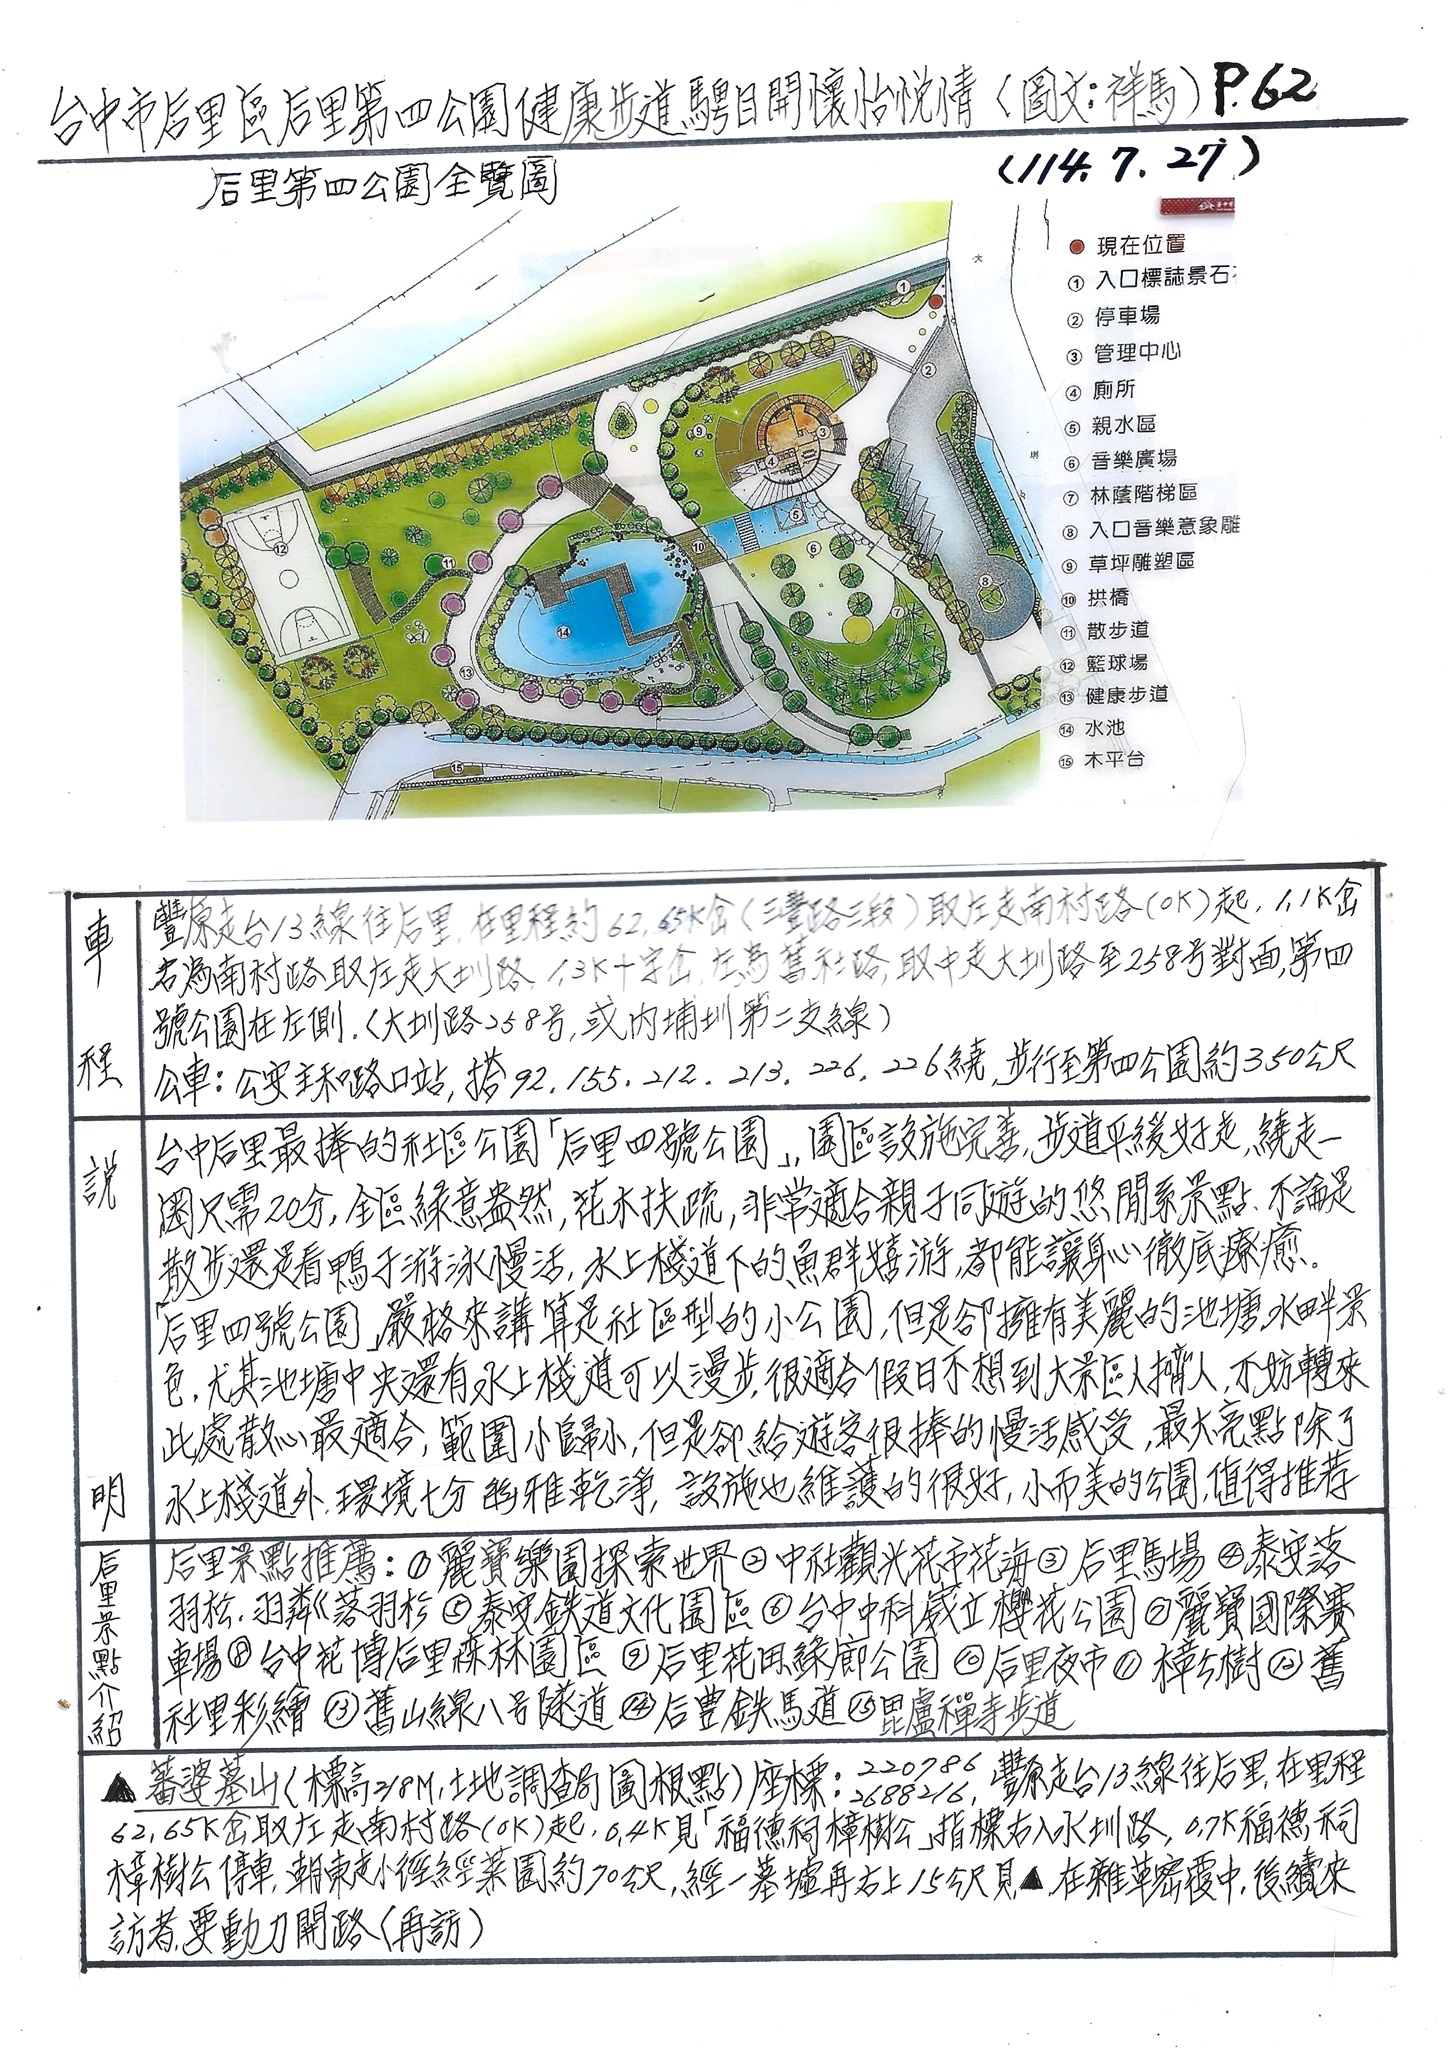 台中市后里區后里第四公園健康步道騁目開懷怡悅情(圖文:祥馬)P.62
(114.7.27)
后里第四公園全覽圖
現在位置
① 入口標誌景石
② 停車場
③ 管理中心
④ 廁所
⑤ 親水區
⑥ 音樂廣場
⑦ 林蔭階梯區
⑧ 入口音樂意象雕
⑨ 草坪雕塑區
⑩ 拱橋
⑪ 散步道
⑫ 籃球場
⑬ 健康步道
⑭ 水池
⑮ 木平台
車程
豐原走台13線往后里,在里程約62,65K岔(三豐路三段)取左走南村路(0K)起,1,1K岔
右為南村路取左走大圳路,1,3K十字岔,左為舊社路,取中走大圳路至258号對面,第四
號公園在左側.(大圳路258号,或內埔圳第二支線)
公車:公安主和路口站,搭92.155.212.213.226.226繞,步行至第四公園約350公尺
說明
台中后里最捧的社區公園「后里四號公園」,園區設施完善,步道平緩好走,繞走一
圈只需20分,全區綠意盎然,花木扶疏,非常適合親子同遊的悠閒系景點.不論是
散步還是看鴨子游泳慢活,水上棧道下的魚群嬉游,都能讓身心徹底療癒.
「后里四號公園」嚴格來講算是社區型的小公園,但是卻擁有美麗的池塘,水畔景
色,尤其池塘中央還有水上棧道可以漫步,很適合假日不想到大景區人擠人,不妨轉來
此處散心最適合,範圍小歸小,但是卻給遊客很捧的慢活感受,最大亮點除了
水上棧道外,環境十分幽雅乾淨,設施也維護的很好,小而美的公園,值得推荐
后里景點介紹
后里景點推薦:①麗寶樂園探索世界②中社觀光花市花海③后里馬場④泰安落
羽松.羽粼《落羽杉⑤泰安鉄道文化園區⑥台中中科崴立櫻花公園⑦麗寶國際賽
車場⑧台中花博后里森林園區⑨后里花田綠廊公園⑩后里夜市⑪樟公樹⑫舊
社里彩繪⑬舊山線八号隧道⑭后豊鉄馬道⑮毘盧禪寺步道
▲蕃婆墓山(標高218M,土地調查局圖根點)座標:220786 2688216,豐原走台13線往后里,在里程
62,65K岔取左走南村路(0K)起,0,4K見「福德祠樟樹公」指標右入水圳路,0,7K福德祠
樟樹公停車,朝東走小徑經菜園約70公尺,經一墓墟再右上15公尺見▲在雜草密覆中,後續來
訪者,要動刀開路(再訪)